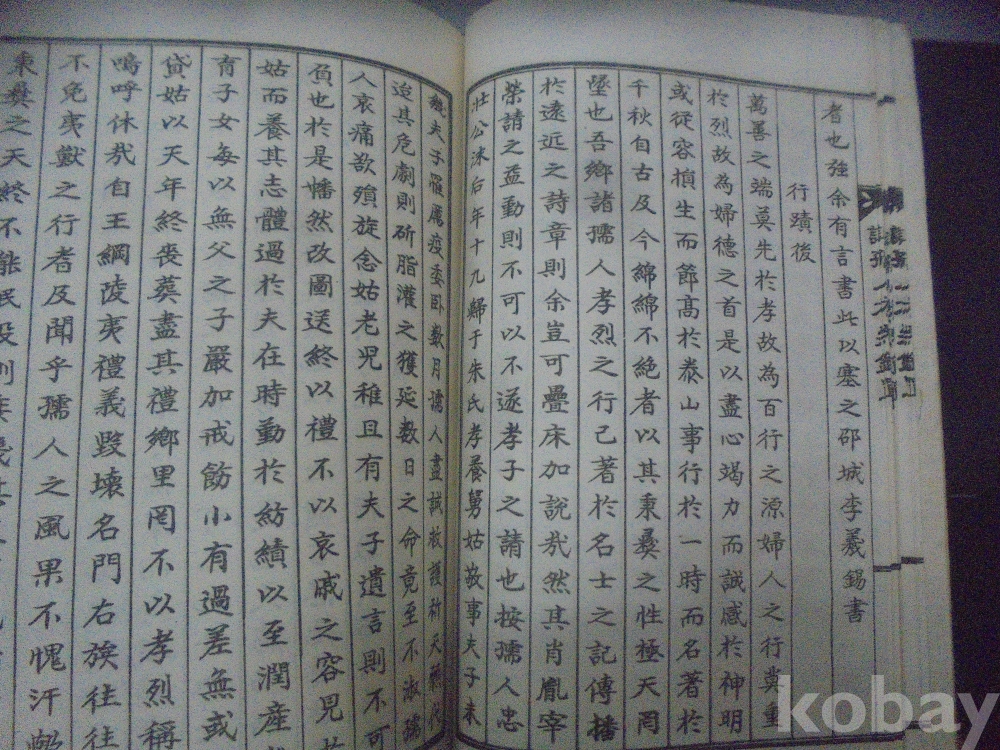 者也強余有言書此以塞之邵城李羲錫書
行蹟後
萬善之端莫先於孝故為百行之源婦人之行莫重
於烈故為婦德之首是以盡心竭力而誠感於神明
或從容損生而節高於泰山事行於一時而名著於
千秋自古及今綿綿不絕者以其秉彝之性極天罔
墜也吾鄉諸孺人孝烈之行已著於名士之記傳播
於遠近之詩章則余豈可疊床加說哉然其肖胤宰
榮請之益勤則不可以不遂孝子之請也按孺人忠
壯公沫后年十九歸于朱氏孝養舅姑敬事夫子未
幾夫子罹厲疫委臥數月孺人盡誠救護祈天願代
迨其危劇則斫脂灌之獲延數日之命竟至不淑孺
人哀痛欲殞旋念姑老兒稚且有夫子遺言則不可
負也於是幡然改圖送終以禮不以哀戚之容見
姑而養其志體過於夫在時勤於紡績以至潤產
育子女每以無父之子嚴加戒飭小有過差無或
貸姑以天年終喪葬盡其禮鄉里罔不以孝烈稱
嗚呼休哉自王綱陵夷禮義毀壞名門右族往往
不免夷獸之行者及聞乎孺人之風果不愧汗
秉彝之天終不能民没則
kobay